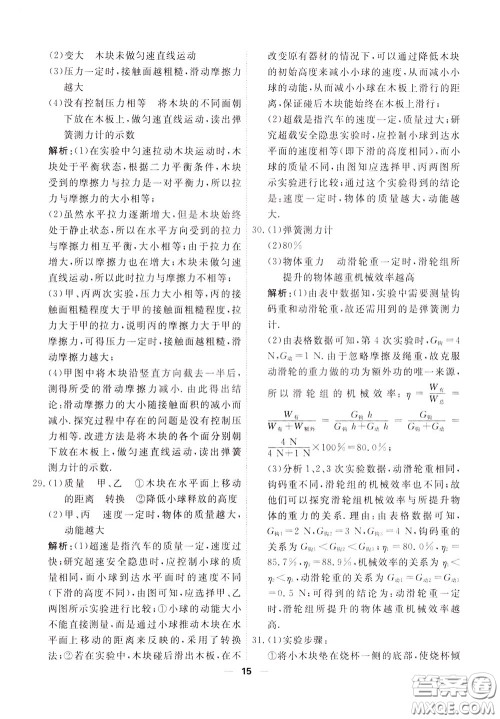 (2)变大　木块未做匀速直线运动
(3)压力一定时,接触面越粗糙,滑动摩擦力
越大
(4)没有控制压力相等　将木块的不同面朝
下放在木板上,做匀速直线运动,读出弹
簧测力计的示数
解析:(1)在实验中匀速拉动木块运动时,木
块处于平衡状态,根据二力平衡条件,木块
受到的摩擦力与拉力是一对平衡力,所以拉
力与摩擦力的大小相等;
(2)虽然水平拉力逐渐增大,但是木块始终
处于静止状态,所以在水平方向受到的拉力
与摩擦力相互平衡,大小相等;由于拉力在
增大,所以摩擦力也在增大;木块未做匀速
直线运动,所以此时拉力与摩擦力不相等;
(3)甲、丙两次实验,压力大小相等,丙的接触
面粗糙程度大于甲的接触面粗糙程度,丙拉
力大于甲的拉力,说明丙的摩擦力大于甲的
摩擦力,故可得:压力一定时,接触面越粗糙,
摩擦力越大;
(4)甲图中将木块沿竖直方向截去一半后,
测得所受的滑动摩擦力减小.由此得出结
论:滑动摩擦力的大小随接触面积的减小而
减小.探究过程中存在的问题是没有控制压
力相等.改进方法是将木块的各个面分别朝
下放在木板上,做匀速直线运动,读出弹簧
测力计的示数.
29.(1)质量　甲、乙　①木块在水平面上移动
的距离　转换　②降低小球释放的高度
(2)甲、丙　速度一定时,物体的质量越大,
动能越大
解析:(1)超速是指汽车的质量一定,速度过
快;研究超速安全隐患时,应控制小球的质
量相同,而小球到达水平面时的速度不同
(下滑的高度不同),由图知,应选择甲、乙
两图所示实验进行比较;①小球的动能大小
不能直接观察,而是通过小球推动木块在水
平面上移动的距离来反映的,采用了转换
法;②若在实验中,木块碰后滑出木板,在不
改变原有器材的情况下,可以通过降低木块
的初始高度来减小小球的速度,从而减小小
球的动能,从而减小小球在木板上滑行的距
离,保证碰后木块能始终在木板上滑行;
(2)超载是指汽车的速度一定,质量过大;研
究超载安全隐患实验时,应控制小球到达水
平面的速度相等(即下滑的高度相同),而小
球的质量不同,由图知应选择甲、丙两图所
示实验进行比较;通过这个实验得出的结论
是:速度一定时,物体的质量越大,动能越
大.
30.(1)弹簧测力计
(2)80%
(3)物体重力　动滑轮重一定时,滑轮组所
提升的物体越重机械效率越高
解析:(1)由表中数据知,实验中需要测量钩
码重和动滑轮重,故还需用到的是弹簧测力
计.
(2)由表格数据可知,第4次实验时,G钩=4
N,G动=1 N.由于忽略摩擦及绳重,故克服
动滑轮的重力做的功为额外功的唯一来源,
所以滑轮组的机械效率:η=W有/W总
=W有/(W有+W额外)=G钩h/(G钩h+G动h)=G钩/(G钩+G动)=
4 N/(4 N+1 N)×100%=80.0%;
(3)分析1,2,3次实验数据,动滑轮重相同,
钩码重不同,滑轮组的机械效率也不同;故
他是想探究滑轮组机械效率与所提升物体
的重力的关系.理由:由表格数据可知,
G钩1=2 N,G钩2=3 N,G钩3=4 N,钩码重的
关系为G钩1<G钩2<G钩3;η1=80.0%,η2=
85.7%,η3=88.9%,机械效率的关系为η1
<η2<η3,动滑轮重的关系为G动1=G动2=G动3
=0.5 N;可得到的结论是:动滑轮重一定
时,滑轮组所提升的物体越重机械效率越
高.
31.(1)实验步骤:
①将小木块垫在烧杯一侧的底部,使烧杯倾
15
答案圈
MXQE.COM